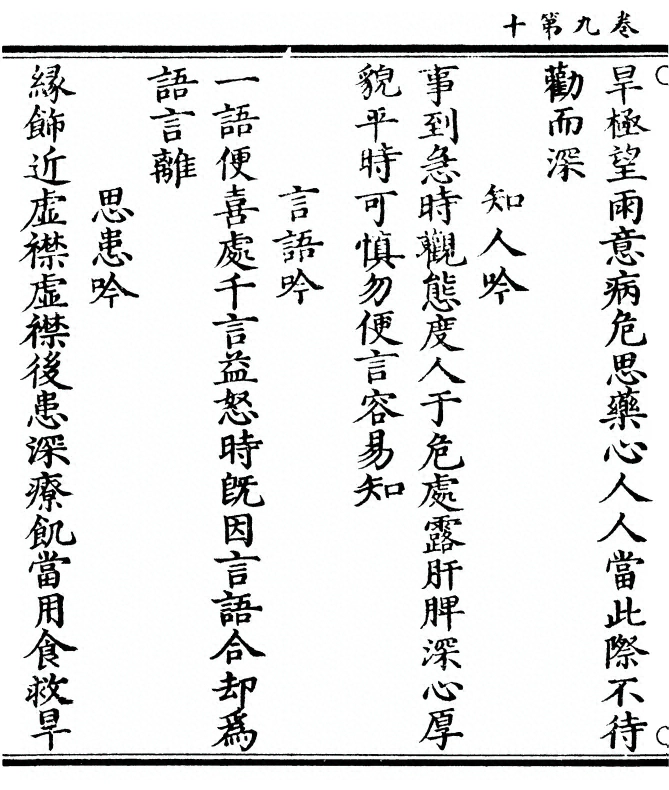 十第九卷
旱極望雨意病危思藥心人人當此際不待
勸而深
知人吟
事到急時觀態度人于危處露肝脾深心厚
貌平時可慎勿便言容易知
言語吟
一語便喜處千言益怒時旣因言語合却爲
語言離
思患吟
緣飾近虛襟虛襟後患深療飢當用食救旱